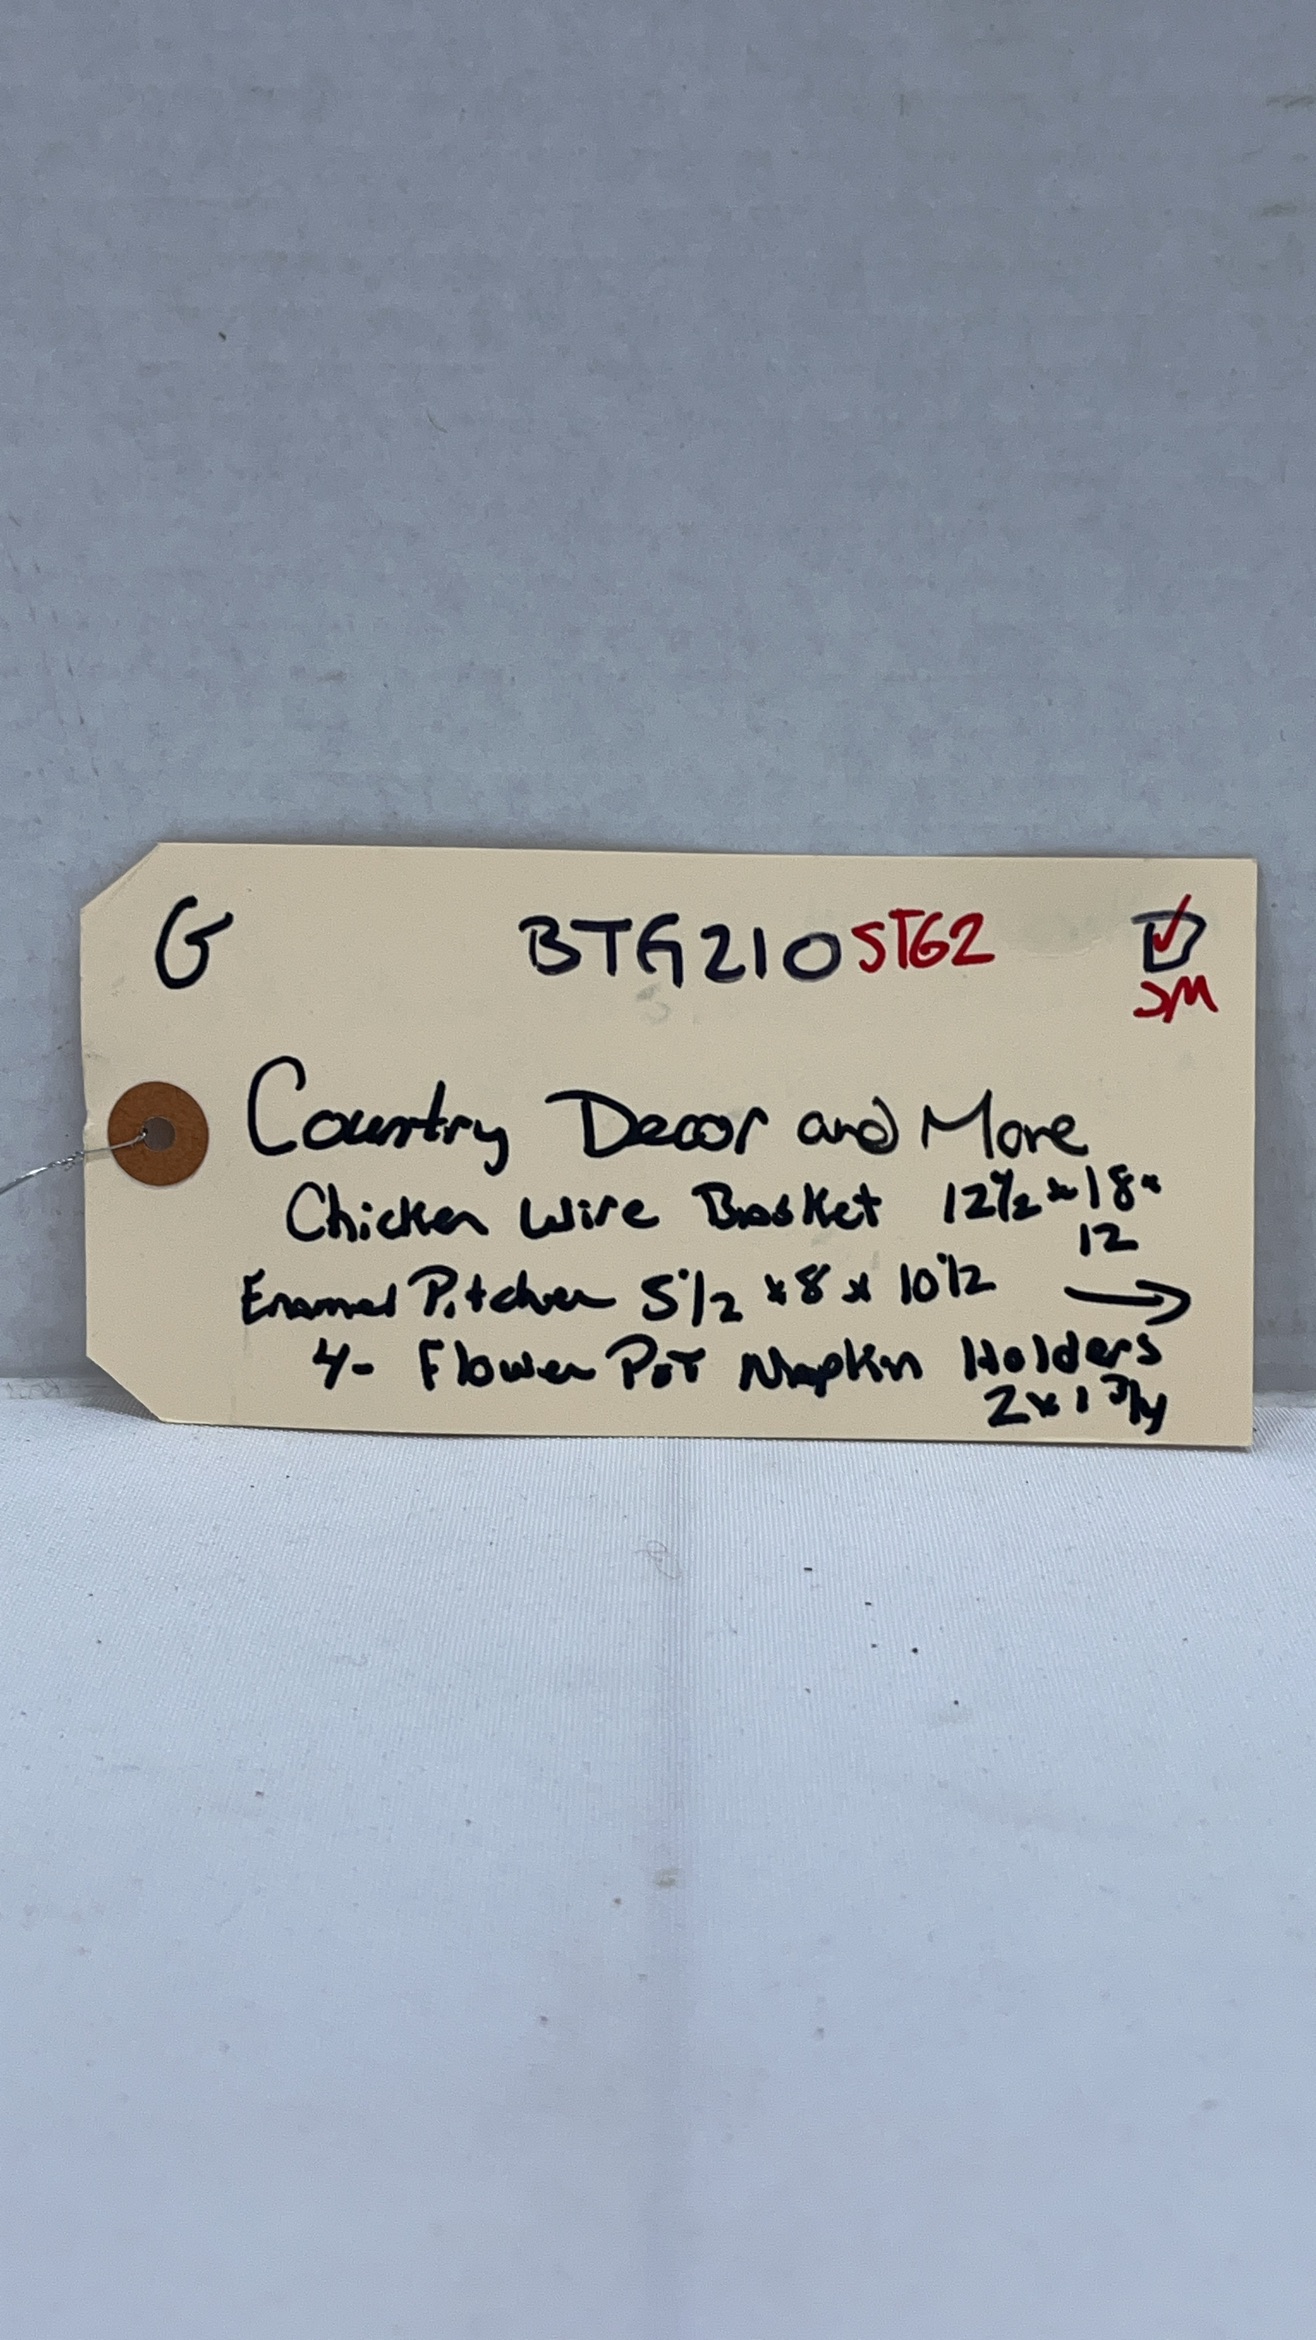 G BTG210 STG2
SM
Country Decor and More
Chicken Wire Basket 12½ x 18 x
12
Enamel Pitcher 5 1/2 x 8 x 10 1/2 →
4- Flower Pot Napkin Holders
2 x 1 3/4